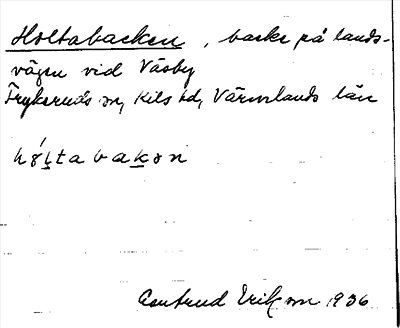 Holtabacken, backe på lands-
vägen vid Väsby
Frykeruds sn, Kils hd, Värmlands län
Gertrud Ericson 1936